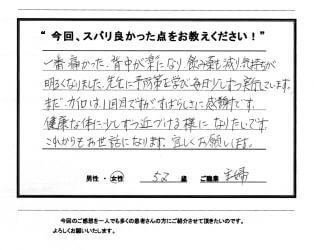 “今回、スバリ良かった点をお教えください！”
一番痛かった、背中が楽になり飲み薬も減り気持ちが
明るくなりました。先生に予防策を学び毎日少しずつ実行しています。
まだ、カイロは１回目ですがすばらしさに感謝です。
健康な体に少しずつ近づける様になりたいです。
これからもお世話になります。宜しくお願いします。
男性・女性 52 歳 ご職業 主婦
今回のご感想を一人でも多くの患者さんの方にご紹介させて頂きたいのです。
よろしくお願いいたします。